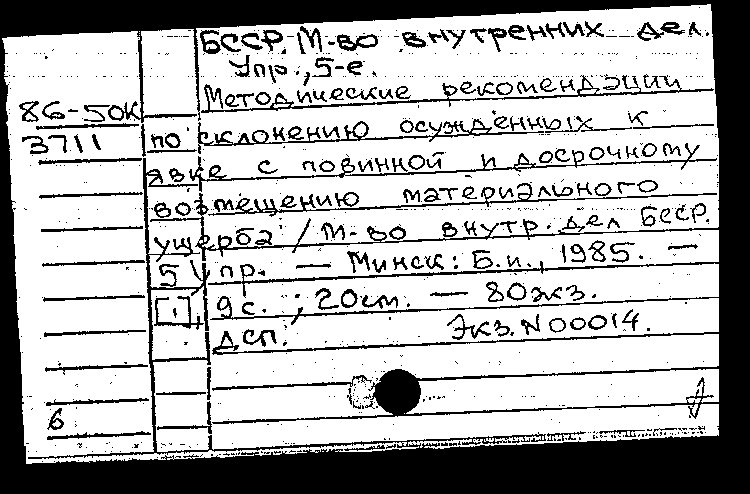 БССР. М-во внутренних дел.
Упр., 5-е.
Методические рекомендации
86-50К
3711
по склонению осужденных к
явке с повинной и досрочному
возмещению материального
ущерба / М-во внутр. дел БССР.
5 Упр. — Минск: Б.и., 1985. —
[1], 9 с. ; 20 см. — 80 экз.
ДСП. Экз. N 00014.
6